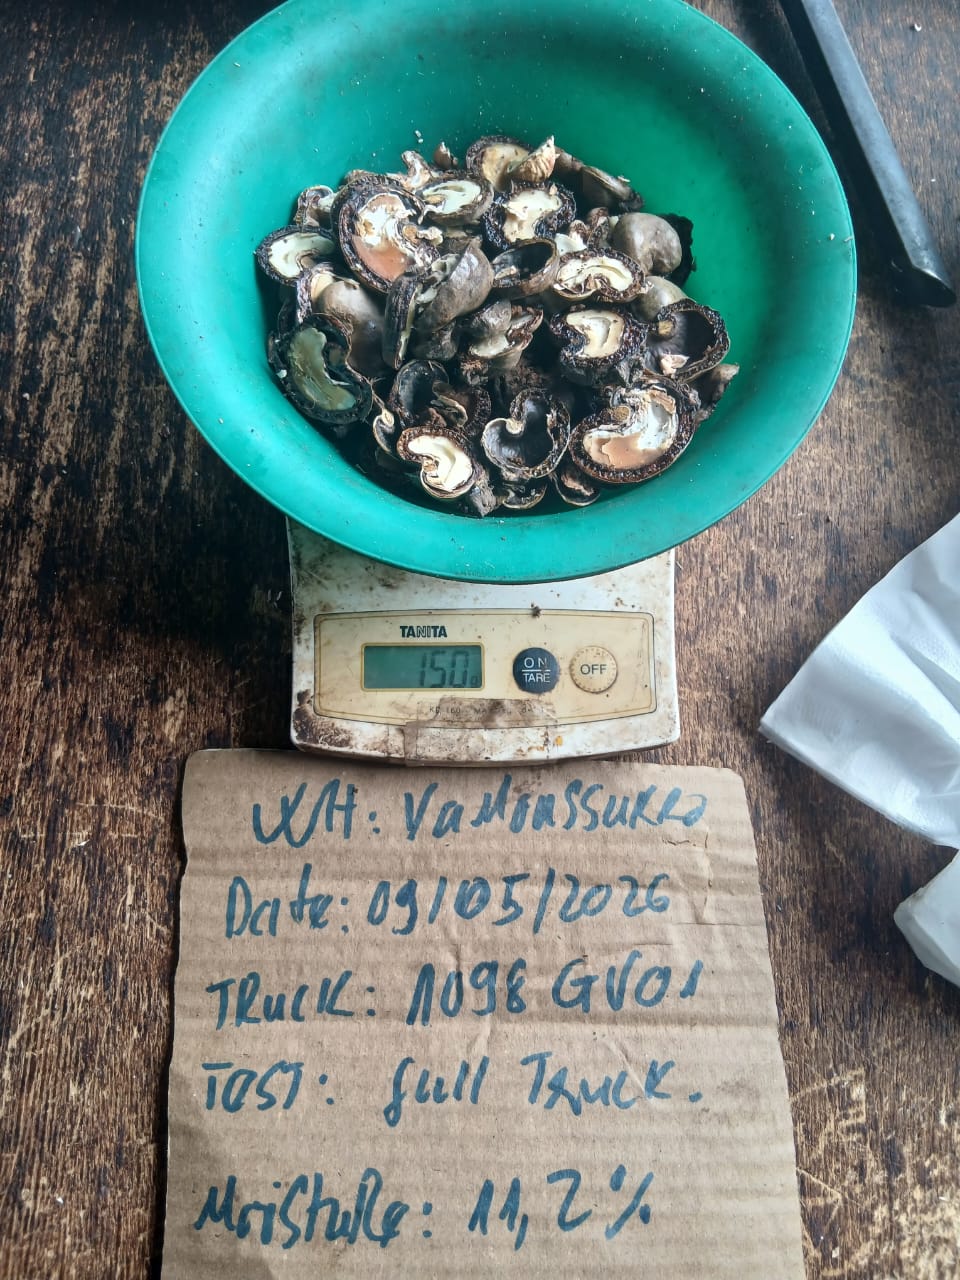 TANITA
150g
ON
TARE
OFF
WH: Yamoussukro
Date: 09/05/2026
TRUCK: 1098 GV01
TEST: full Truck.
Moisture: 11,2%